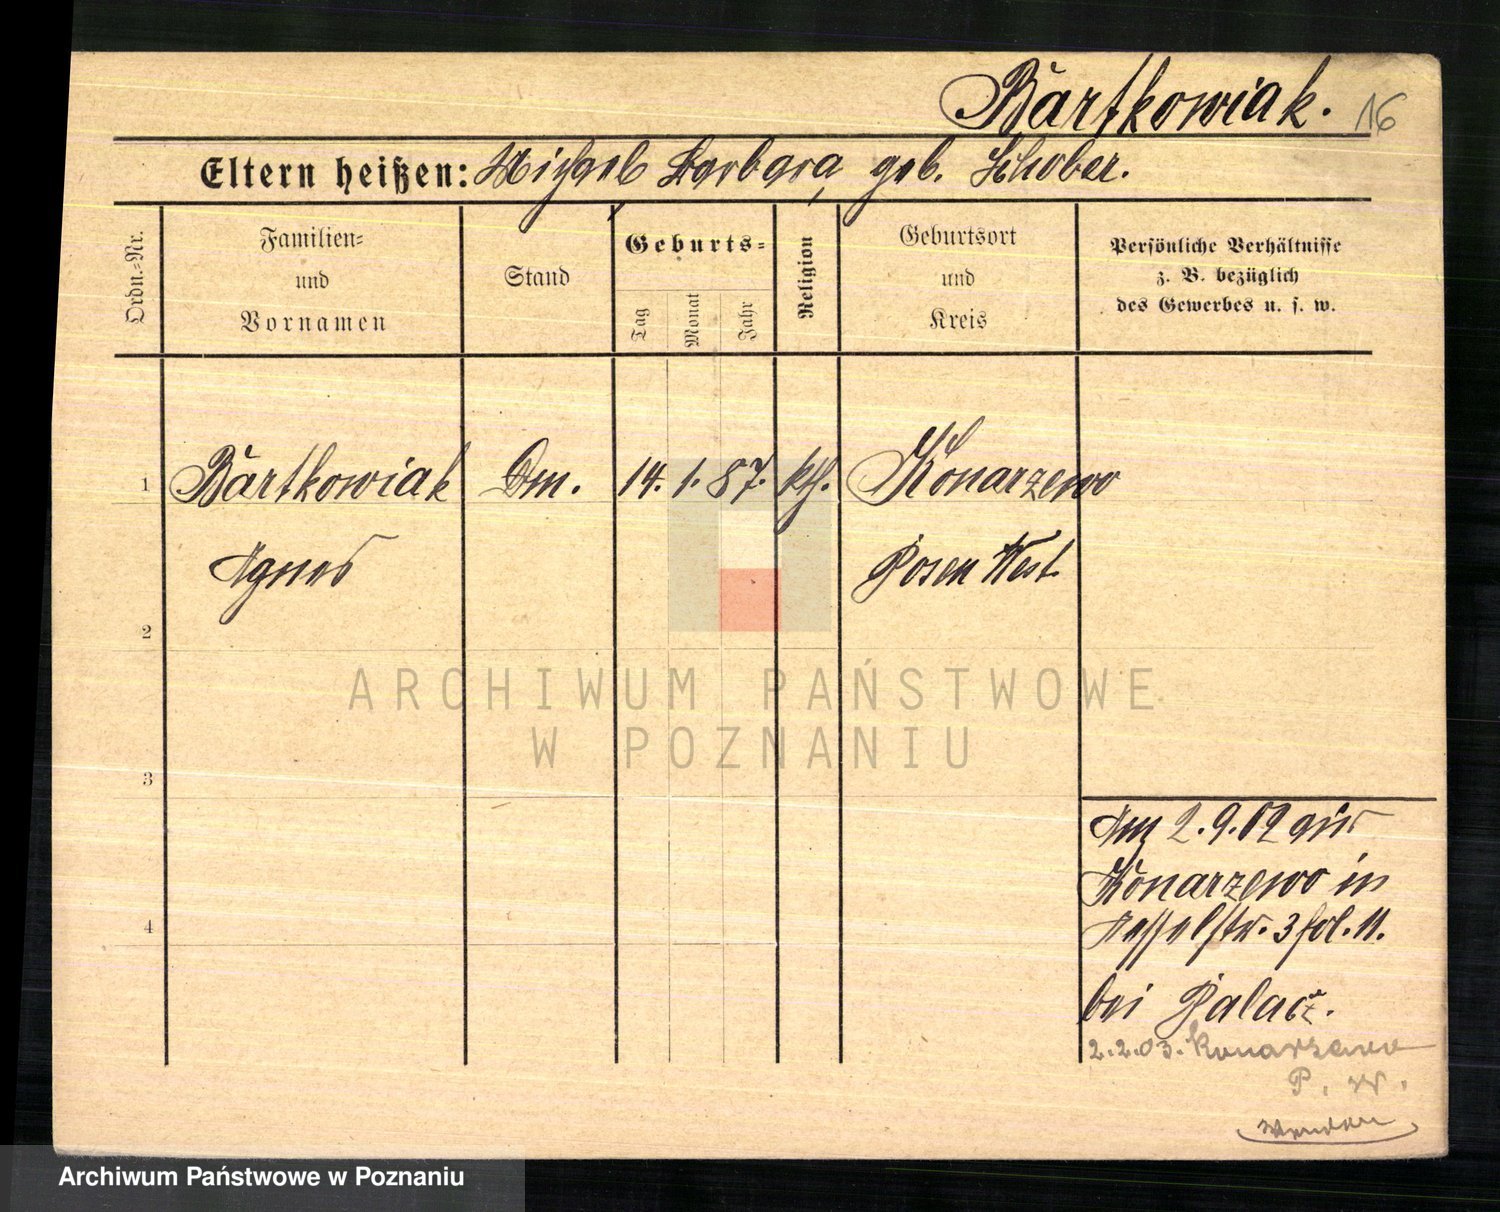 Bartkowiak. 16
Eltern heißen: Michael Barbara geb. Schober.
Ordn.=Nr.
Familien=
und
Vornamen
Stand
Geburts=
Tag
Monat
Jahr
Religion
Geburtsort
und
Kreis
Persönliche Verhältnisse
z. B. bezüglich
des Gewerbes u. s. w.
1 Bartkowiak Dm. 14. 1. 87. kth. Konarzewo
Agnes Posen West
2
3
4
Am 2.9.02 aus
Konarzewo in
3 fol. 11.
bei Palacz.
2.2.03. Konarzewo
P. W.
ARCHIWUM PAŃSTWOWE
W POZNANIU
Archiwum Państwowe w Poznaniu